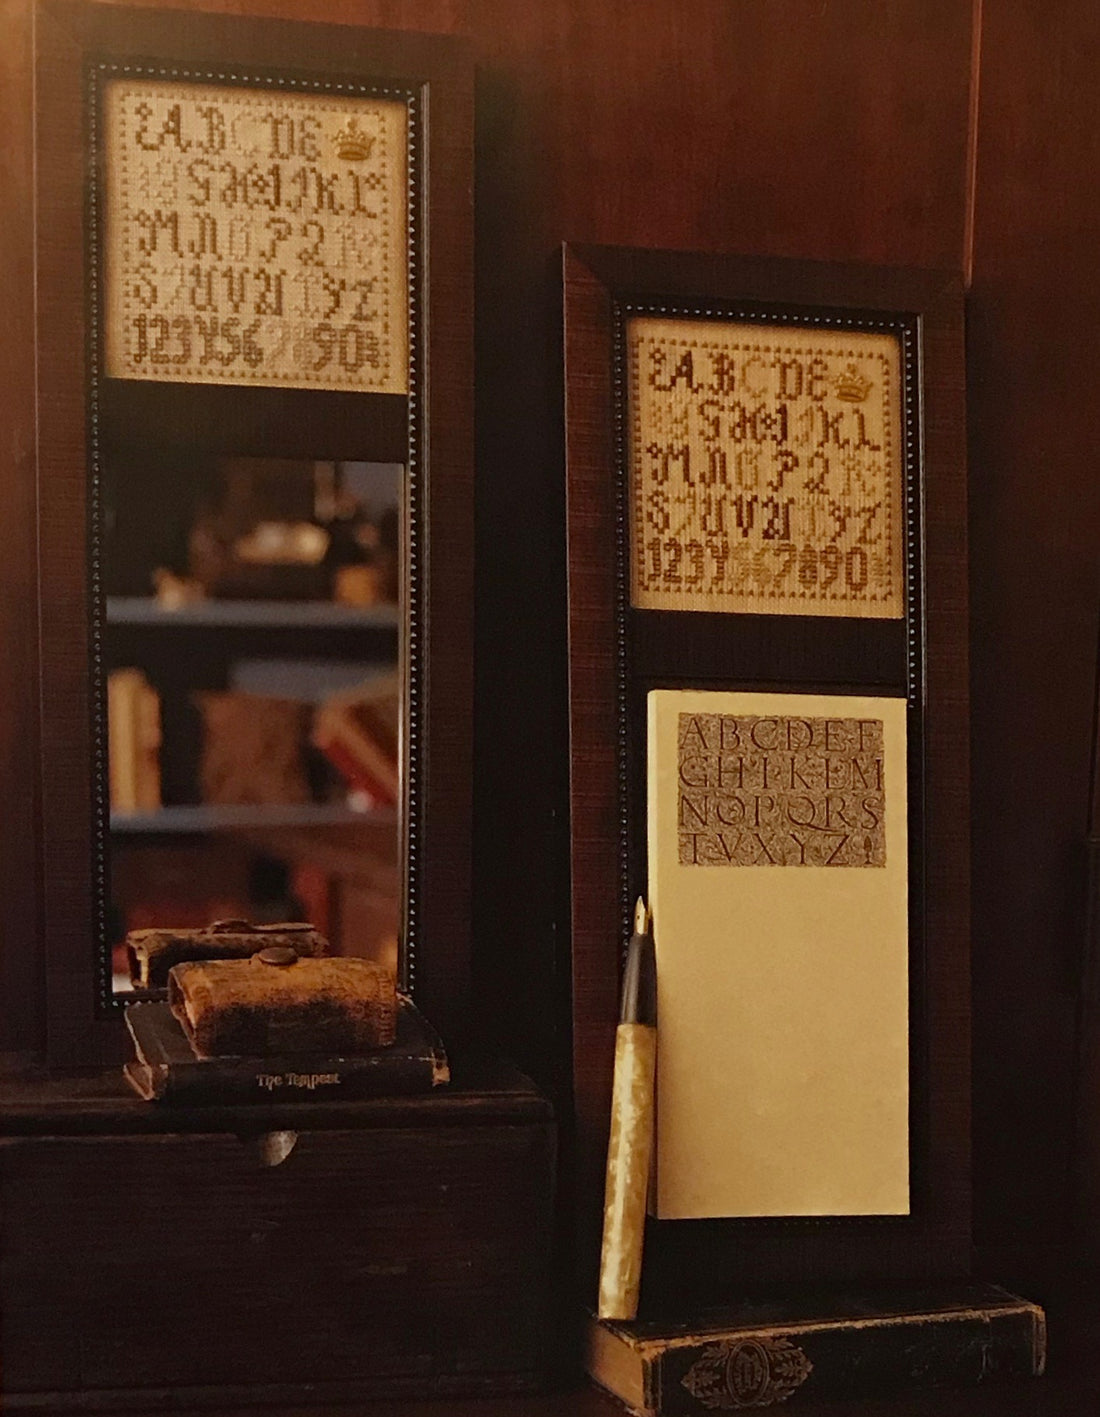 A B C D E
G H I J K L
M N O P 2 R
S T U V W X Y Z
1 2 3 4 5 6 7 8 9 0
A B C D E
G H I J K L
M N O P 2 R
S T U V W X Y Z
1 2 3 4 5 6 7 8 9 0
A B C D E F
G H I K L M
N O P Q R S
T V X Y Z
The Tempest